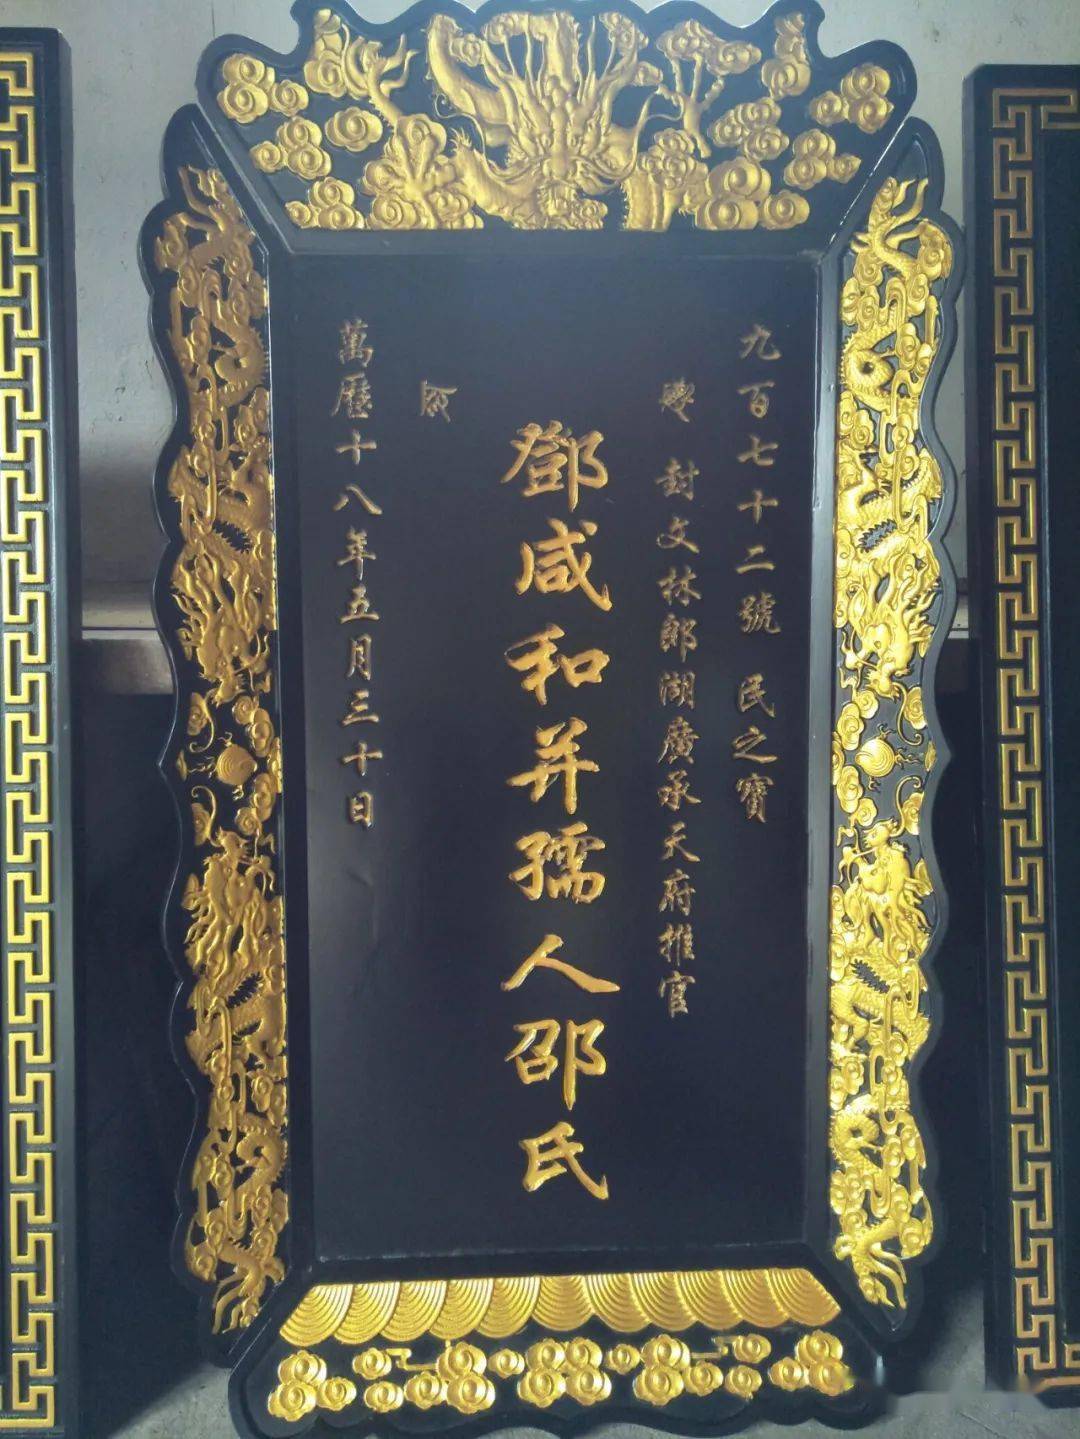 九百七十二號 民之寶
封文林郎湖廣承天府推官
鄧咸和并孺人邵氏
萬曆十八年五月三十日